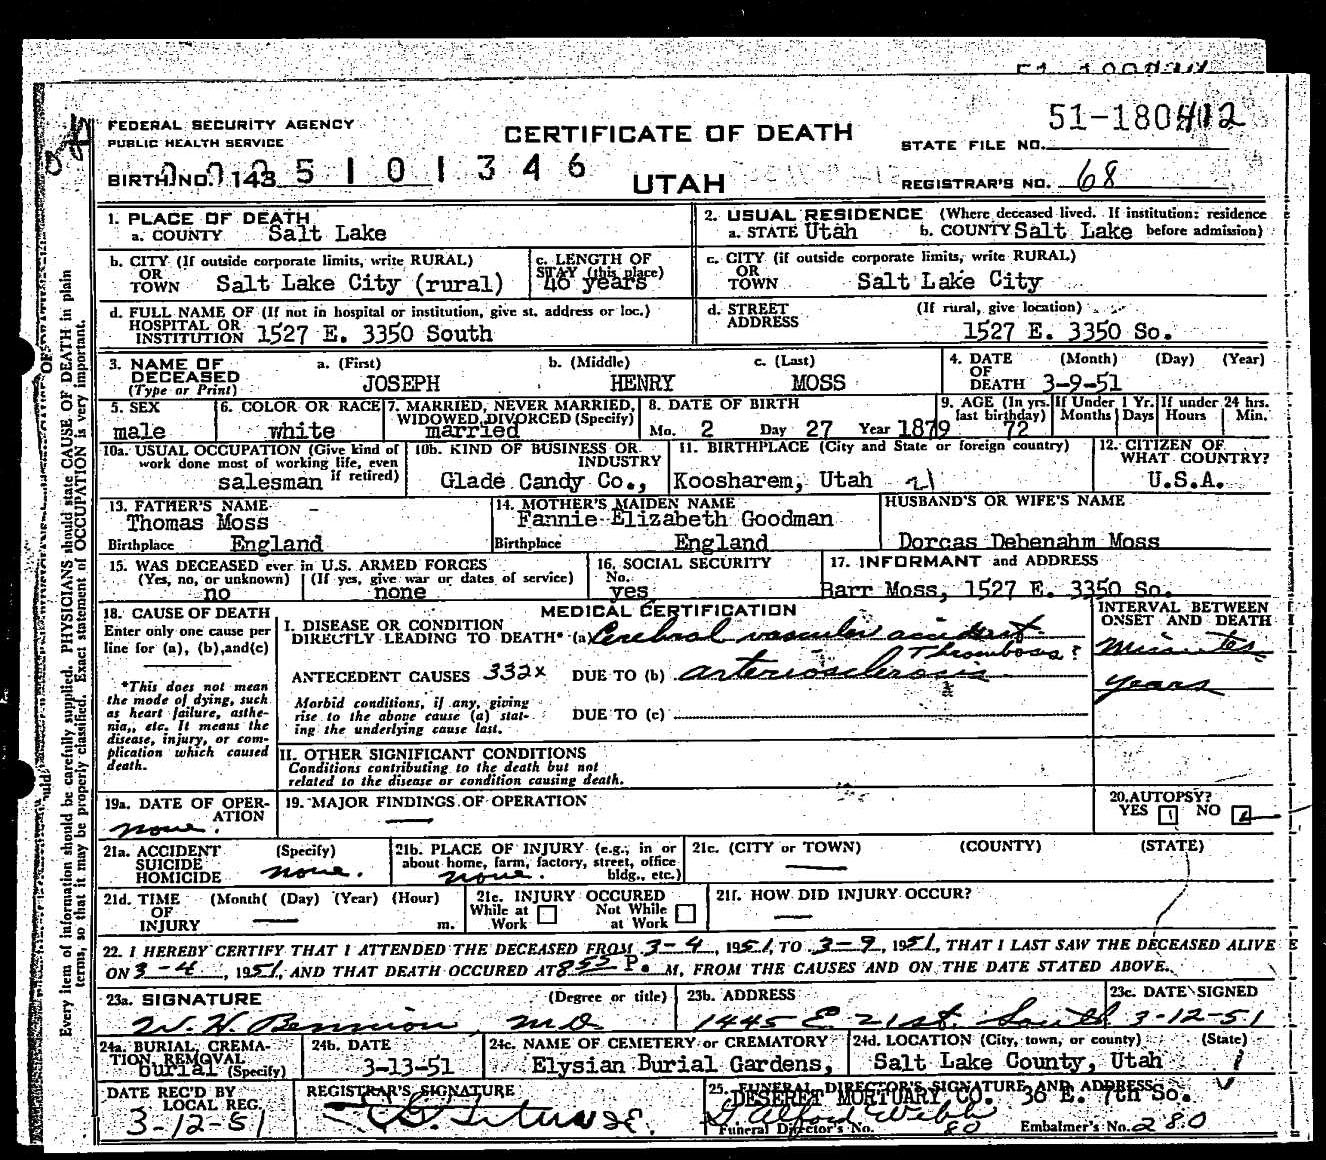 51-180412
FEDERAL SECURITY AGENCY
PUBLIC HEALTH SERVICE
CERTIFICATE OF DEATH
STATE FILE NO.
BIRTH NO. 143 5 1 0 1 3 4 6
UTAH
REGISTRAR'S NO. 68
1. PLACE OF DEATH
a. COUNTY Salt Lake
2. USUAL RESIDENCE (Where deceased lived. If institution: residence
a. STATE Utah b. COUNTY Salt Lake before admission)
b. CITY (If outside corporate limits, write RURAL)
OR
TOWN Salt Lake City (rural)
c. LENGTH OF
STAY (this place)
46 years
c. CITY (if outside corporate limits, write RURAL)
OR
TOWN Salt Lake City
d. FULL NAME OF (If not in hospital or institution, give st. address or loc.)
HOSPITAL OR
INSTITUTION 1527 E. 3350 South
d. STREET (If rural, give location)
ADDRESS
1527 E. 3350 So.
3. NAME OF
DECEASED
(Type or Print)
a. (First) b. (Middle) c. (Last)
JOSEPH HENRY MOSS
4. DATE (Month) (Day) (Year)
OF
DEATH 3-9-51
5. SEX
male
6. COLOR OR RACE
white
7. MARRIED, NEVER MARRIED,
WIDOWED, DIVORCED (Specify)
married
8. DATE OF BIRTH
Mo. 2 Day 27 Year 1879
9. AGE (In yrs.
last birthday)
72
If Under 1 Yr.
Months Days
If under 24 hrs.
Hours Min.
10a. USUAL OCCUPATION (Give kind of
work done most of working life, even
if retired)
salesman
10b. KIND OF BUSINESS OR
INDUSTRY
Glade Candy Co.,
11. BIRTHPLACE (City and State or foreign country)
Koosharem, Utah 21
12. CITIZEN OF
WHAT COUNTRY?
U.S.A.
13. FATHER'S NAME
Thomas Moss
Birthplace England
14. MOTHER'S MAIDEN NAME
Fannie Elizabeth Goodman
Birthplace England
HUSBAND'S OR WIFE'S NAME
Dorcas Debenahm Moss
15. WAS DECEASED ever in U.S. ARMED FORCES
(Yes, no, or unknown) (If yes, give war or dates of service)
no none
16. SOCIAL SECURITY
No.
yes
17. INFORMANT and ADDRESS
Barr Moss, 1527 E. 3350 So.
18. CAUSE OF DEATH
Enter only one cause per
line for (a), (b), and (c)
*This does not mean
the mode of dying, such
as heart failure, asthe-
nia,, etc. It means the
disease, injury, or com-
plication which caused
death.
MEDICAL CERTIFICATION
I. DISEASE OR CONDITION
DIRECTLY LEADING TO DEATH* (a) Cerebral vascular accident
Thrombosis?
ANTECEDENT CAUSES 332x DUE TO (b) arteriosclerosis
Morbid conditions, if any, giving
rise to the above cause (a) stat-
ing the underlying cause last.
DUE TO (c)
INTERVAL BETWEEN
ONSET AND DEATH
Minutes
years
II. OTHER SIGNIFICANT CONDITIONS
Conditions contributing to the death but not
related to the disease or condition causing death.
19a. DATE OF OPER-
ATION
none.
19. MAJOR FINDINGS OF OPERATION
20. AUTOPSY?
YES NO
21a. ACCIDENT (Specify)
SUICIDE
HOMICIDE none.
21b. PLACE OF INJURY (e.g., in or
about home, farm, factory, street, office
bldg., etc.)
none.
21c. (CITY or TOWN) (COUNTY) (STATE)
21d. TIME (Month( (Day) (Year) (Hour)
OF
INJURY m.
21e. INJURY OCCURED
While at Work Not While at Work
21f. HOW DID INJURY OCCUR?
22. I HEREBY CERTIFY THAT I ATTENDED THE DECEASED FROM 3-4, 1951, TO 3-9, 1951, THAT I LAST SAW THE DECEASED ALIVE
ON 3-4, 1951, AND THAT DEATH OCCURED AT 8 55 P. M, FROM THE CAUSES AND ON THE DATE STATED ABOVE.
23a. SIGNATURE (Degree or title)
W. H. Bennion, MD
23b. ADDRESS
1445 E 21st. South
23c. DATE SIGNED
3-12-51
24a. BURIAL, CREMA-
TION, REMOVAL
burial (Specify)
24b. DATE
3-13-51
24c. NAME OF CEMETERY or CREMATORY
Elysian Burial Gardens,
24d. LOCATION (City, town, or county) (State)
Salt Lake County, Utah
DATE REC'D BY
LOCAL REG.
3-12-51
REGISTRAR'S SIGNATURE
25. FUNERAL DIRECTOR'S SIGNATURE AND ADDRESS
DESERET MORTUARY CO. 36 E. 7th So.
G. Alford Webb
Funeral Director's No. 80 Embalmer's No. 280
Every item of information should be carefully supplied. PHYSICIANS should state CAUSE OF DEATH in plain
terms, so that it may be properly classified. Exact statement of OCCUPATION is very important.